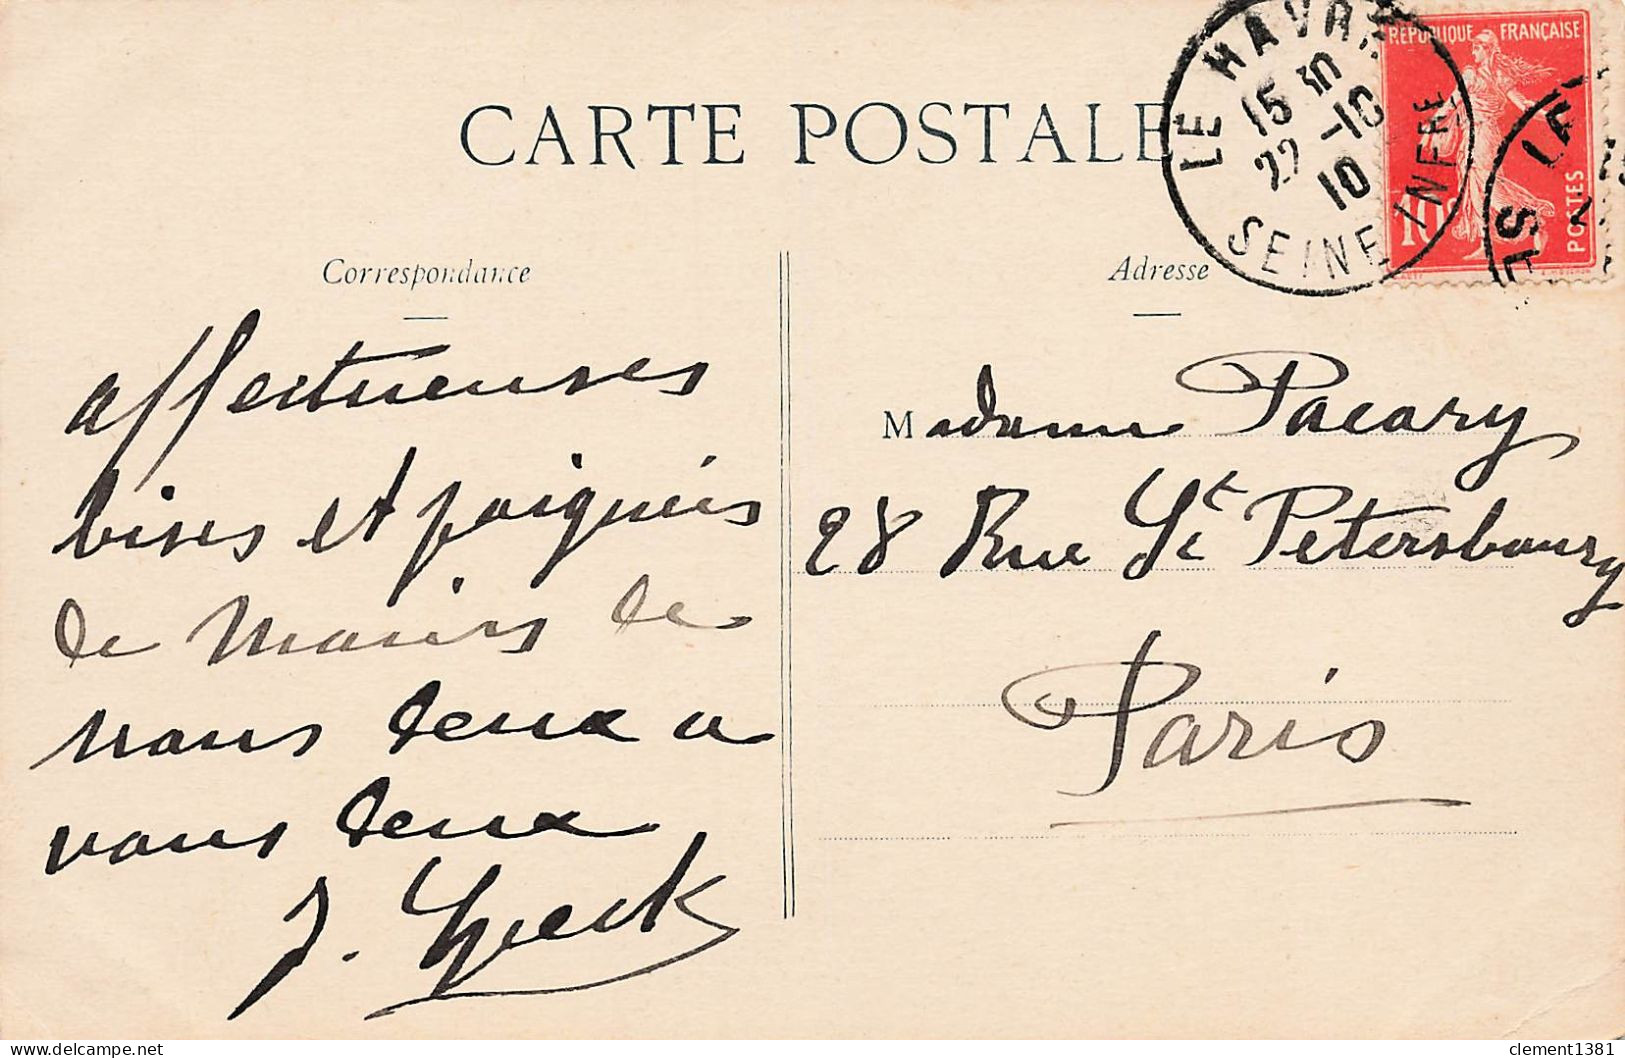 CARTE POSTALE
LE HAVRE
15 30
22 -10
10
SEINE INFRE
REPUBLIQUE FRANÇAISE
10c
POSTES
Correspondance
Adresse
affectueuses
bises et poignées
de mains de
nous deux a
vous deux
Madame Pacary
28 Rue St Petersbourg
Paris
clement1381